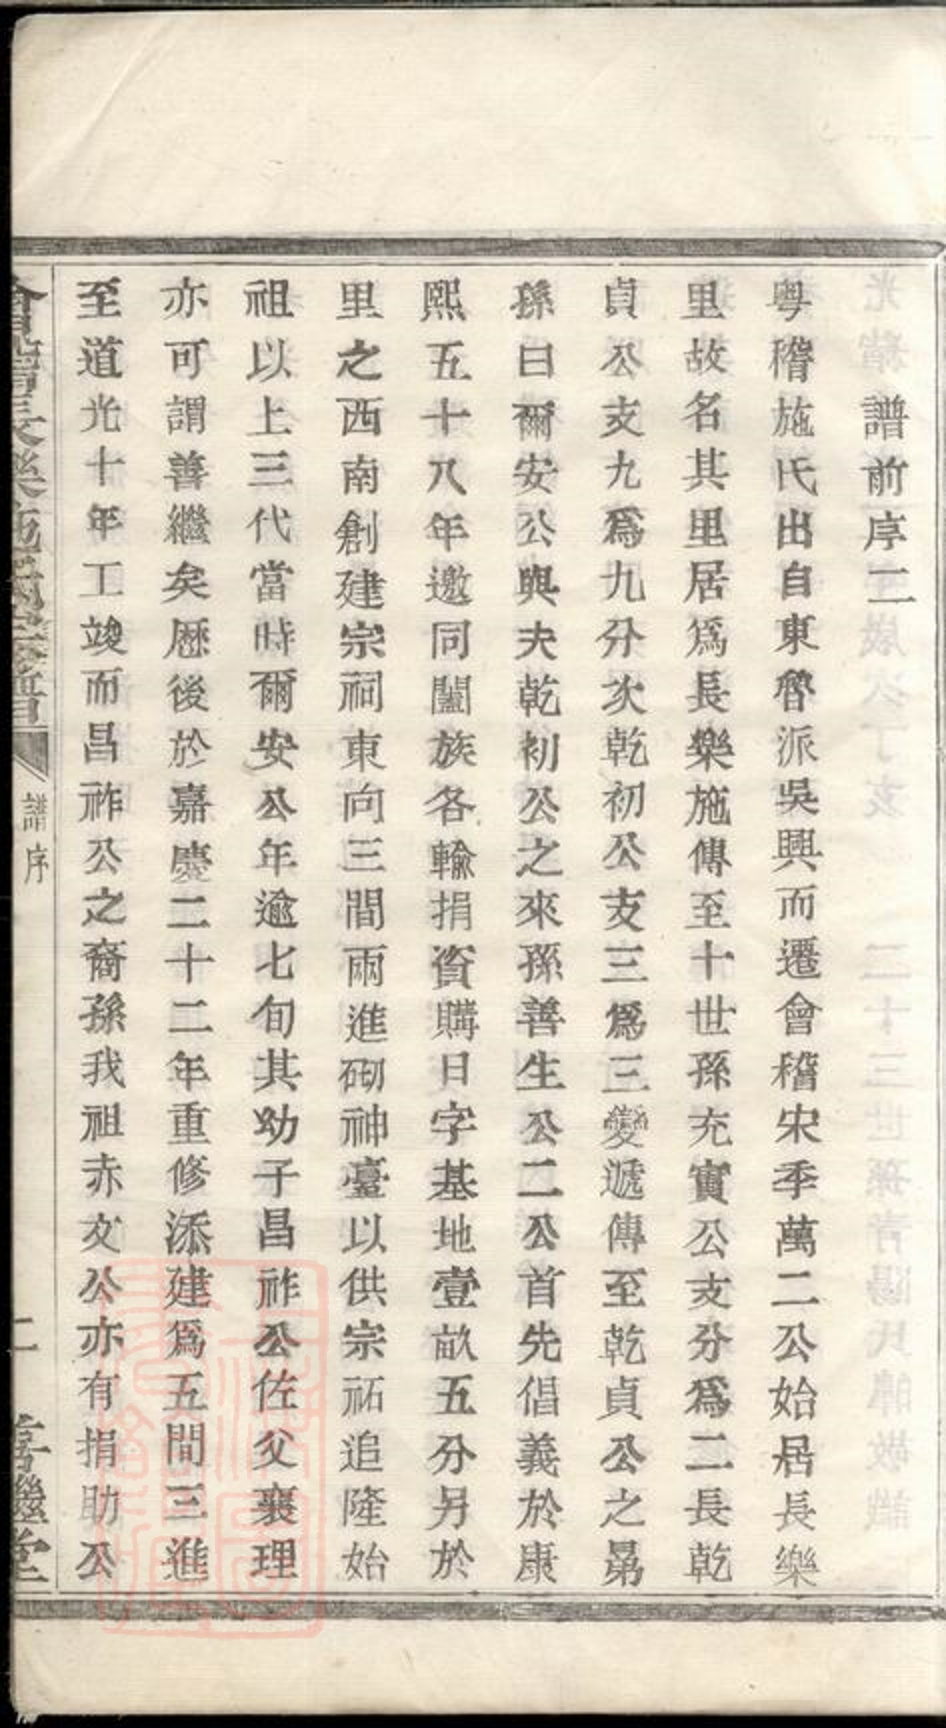 譜前序二
粤稽施氏出自東魯派吳興而遷會稽宋季萬二公始居長樂
里故名其里居爲長樂施傳至十世孫充實公支分爲二長乾
貞公支九爲九分次乾初公支三爲三變遞傳至乾貞公之曷
孫曰爾安公與夫乾初公之來孫善生公二公首先倡義於康
熙五十八年邀同闔族各輸捐資購日字基地壹畝五分另於
里之西南創建宗祠東向三間兩進砌神臺以供宗祏追隆始
祖以上三代當時爾安公年逾七旬其幼子昌祚公佐父襄理
亦可謂善繼矣歴後於嘉慶二十二年重修添建爲五間三進
至道光十年工竣而昌祚公之裔孫我祖赤文公亦有捐助公
會稽長樂施氏宗譜
譜序
二
善繼堂